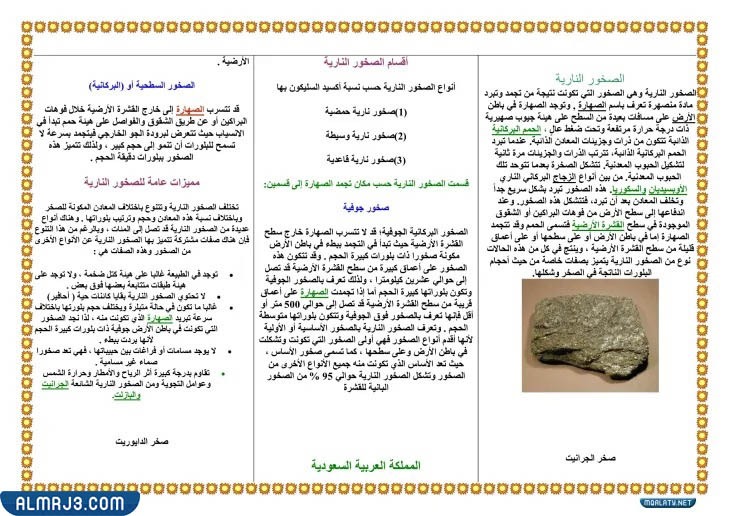 الصخور النارية
الصخور النارية وهي الصخور التي تكونت نتيجة من تجمد وتبرد
مادة منصهرة تعرف باسم الصهارة . وتوجد الصهارة في باطن
الأرض على مسافات بعيدة من السطح على هيئة جيوب صهيرية
ذات درجة حرارة مرتفعة وتحت ضغط عال ، الحمم البركانية
الذائبة تتكون من ذرات وجزيئات المعادن الذائبة. عندما تبرد
الحمم البركانية الذائبة، تترتب الذرات والجزيئات مرة ثانية
لتشكيل الحبوب المعدنية. تتشكل الصخرة بعدما تتوحد تلك
الحبوب المعدنية. من بين أنواع الزجاج البركاني الناري
الأوبسيديان والسكوريا. هذه الصخور تبرد بشكل سريع جداً
وتخلف المعادن بعد أن تبرد، فتتشكل هذه الصخور. وعند
اندفاعها إلى سطح الأرض من فوهات البراكين أو الشقوق
الموجودة في سطح القشرة الأرضية فتسمى الحمم وقد تتجمد
الصهارة إما في باطن الأرض أو على سطحها أو على أعماق
قليلة من سطح القشرة الأرضية ، وينتج في كل من هذه الحالات
نوع من الصخور النارية يتميز بصفات خاصة من حيث أحجام
البلورات الناتجة في الصخر وشكلها.
صخر الجرانيت
أقسام الصخور النارية
أنواع الصخور النارية حسب نسبة أكسيد السليكون بها
(1)صخور نارية حمضية
(2)صخور نارية وسيطة
(3)صخور نارية قاعدية
قسمت الصخور النارية حسب مكان تجمد الصهارة إلى قسمين:
صخور جوفية
الصخور البركانية الجوفية: قد لا تتسرب الصهارة خارج سطح
القشرة الأرضية حيث تبدأ في التجمد ببطء في باطن الأرض
مكونة صخورا ذات بلورات كبيرة الحجم . وقد تتكون هذه
الصخور على أعماق كبيرة من سطح القشرة الأرضية قد تصل
إلى حوالي عشرين كيلومترا ، ولذلك تعرف بالصخور الجوفية
وتكون بلوراتها كبيرة الحجم أما إذا تجمدت الصهارة على أعماق
قريبة من سطح القشرة الأرضية قد تصل إلى حوالي 500 متر أو
أقل فإنها تعرف بالصخور فوق الجوفية وتتكون بلوراتها متوسطة
الحجم . وتعرف الصخور النارية بالصخور الأساسية أو الأولية
لأنها أقدم أنواع الصخور فهي أولى الصخور التي تكونت وتشكلت
في باطن الأرض وعلى سطحها ، كما تسمى صخور الأساس ،
حيث تعد الأساس الذي تكونت منه جميع الأنواع الأخرى من
الصخور وتشكل الصخور النارية حوالي 95 % من الصخور
البانية للقشرة
المملكة العربية السعودية
الأرضية .
الصخور السطحية أو (البركانية)
قد تتسرب الصهارة إلى خارج القشرة الأرضية خلال فوهات
البراكين أو عن طريق الشقوق والفواصل على هيئة حمم تبدأ في
الانسياب حيث تتعرض لبرودة الجو الخارجي فيتجمد بسرعة لا
تسمح للبلورات أن تنمو إلى حجم كبير ، ولذلك تتميز هذه
الصخور ببلورات دقيقة الحجم .
مميزات عامة للصخور النارية
تختلف الصخور النارية وتتنوع باختلاف المعادن المكونة للصخر
وباختلاف نسبة هذه المعادن وحجم وترتيب بلوراتها . وهناك أنواع
عديدة من الصخور النارية قد تصل إلى المئات ، وبالرغم من هذا التنوع
فإن هناك صفات مشتركة تتميز بها الصخور النارية عن الأنواع الأخرى
من الصخور وهذه الصفات هي :
توجد في الطبيعة غالبا على هيئة كتل ضخمة ، ولا توجد على
هيئة طبقات متتابعة بعضها فوق بعض .
لا تحتوي الصخور النارية بقايا كائنات حية ( أحافير)
غالبا ما تكون في حالة متبلرة ويختلف حجم بلورتها باختلاف
سرعة تبريد الصهارة الذي تكونت منه ، لذا نجد الصخور
التي تكونت في باطن الأرض جوفية ذات بلورات كبيرة الحجم
لأنها بردت ببطء .
لا يوجد مسامات أو فراغات بين حبيباتها ، فهي تعد صخورا
صماء غير مسامية .
تقاوم بدرجة كبيرة أثر الرياح والأمطار وحرارة الشمس
وعوامل التجوية ومن الصخور النارية الشائعة الجرانيت
والبازلت.
صخر الدايوريت
ALMRJ3.COM
MQALATY.NET